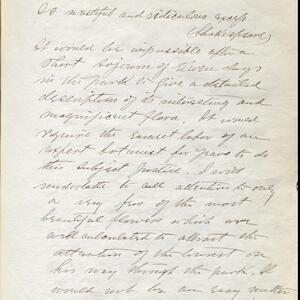 Is wasteful and ridiculous excess
(Shakespeare)
It would be impossible after a
short sojourn of eleven days
in the park to give a detailed
description of its interesting and
magnificent flora. It would
require the earnest labor of an
expert botanist for years to do
this subject justice. I will
undertake to call attention to only
a very few of the most
beautiful flowers which were
well calculated to attract the
attention of the tourist on
his way through the park. It
would not be an easy matter